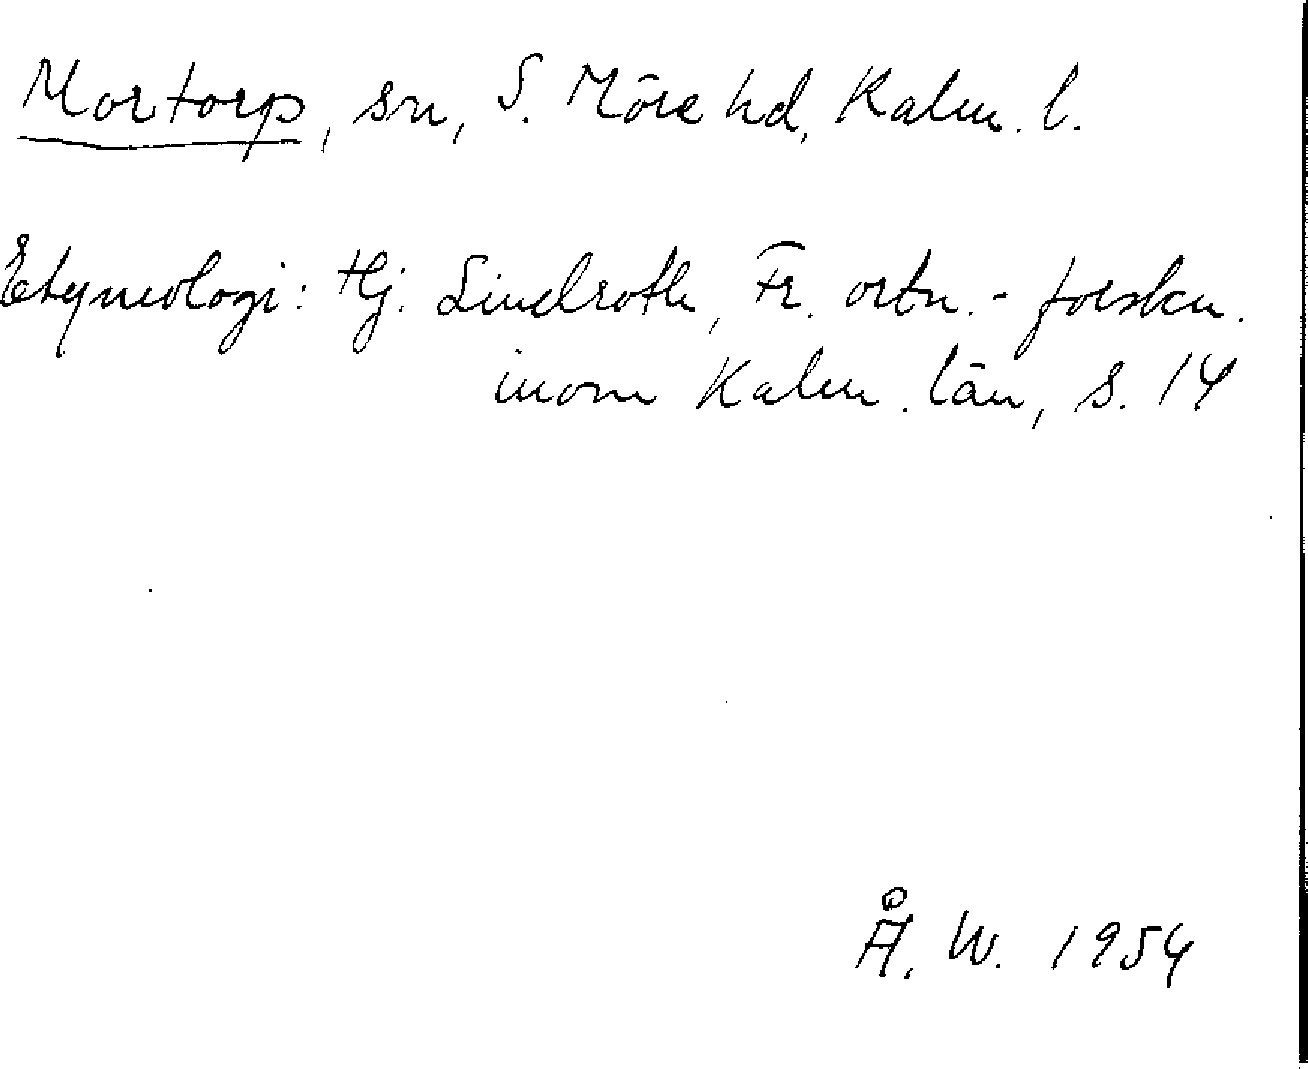 Mortorp, sn, S. Möre hd, Kalm. l.
Etymologi: Hj. Lindroth, Fr. ortn.-forskn.
inom Kalm. län, s. 14
Å. W. 1954